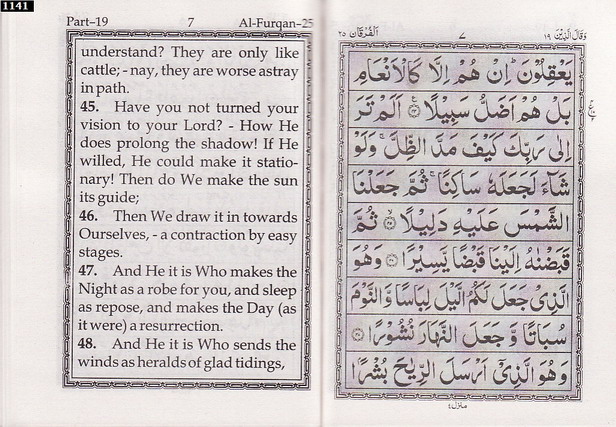 1141
Part–19 7 Al-Furqan–25
understand? They are only like
cattle; - nay, they are worse astray
in path.
45. Have you not turned your
vision to your Lord? - How He
does prolong the shadow! If He
willed, He could make it statio-
nary! Then do We make the sun
its guide;
46. Then We draw it in towards
Ourselves, - a contraction by easy
stages.
47. And He it is Who makes the
Night as a robe for you, and sleep
as repose, and makes the Day (as
it were) a resurrection.
48. And He it is Who sends the
winds as heralds of glad tidings,
وَقَالَ الَّذِيْنَ ١٩ ٧ اَلْفُرْقَان ٢٥
يَعْقِلُوْنَ ؕ اِنْ هُمْ اِلَّا كَالْاَنْعَامِ
بَلْ هُمْ اَضَلُّ سَبِيْلًا ۞ اَلَمْ تَرَ
اِلٰى رَبِّكَ كَيْفَ مَدَّ الظِّلَّ ۚ وَلَوْ
شَآءَ لَجَعَلَهٗ سَاكِنًا ۚ ثُمَّ جَعَلْنَا
الشَّمْسَ عَلَيْهِ دَلِيْلًا ۞ ثُمَّ
قَبَضْنٰهُ اِلَيْنَا قَبْضًا يَّسِيْرًا ۞ وَهُوَ
الَّذِيْ جَعَلَ لَكُمُ الَّيْلَ لِبَاسًا وَّالنَّوْمَ
سُبَاتًا وَّجَعَلَ النَّهَارَ نُشُوْرًا ۞
وَهُوَ الَّذِيْٓ اَرْسَلَ الرِّيٰحَ بُشْرًا
منزل ٤